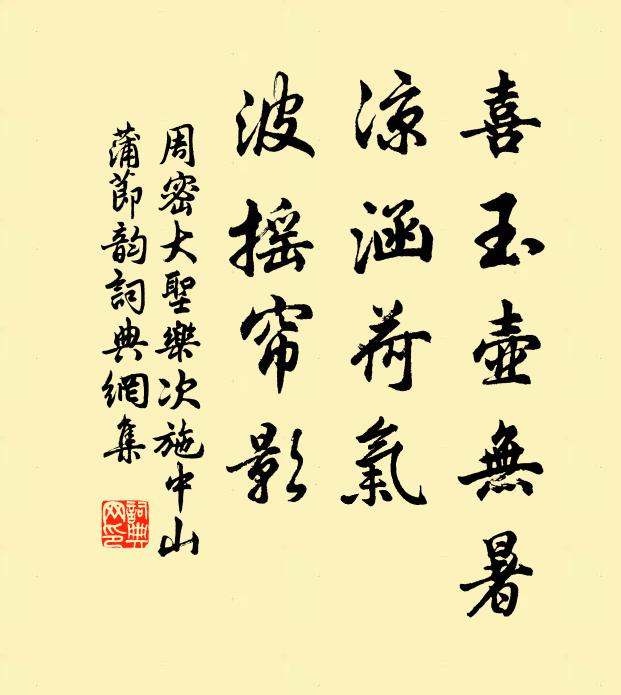 喜玉壺無暑
凉涵荷氣
波摇帘影
周密大聖樂次施中山
蒲節韵詞典網集
詞典網印